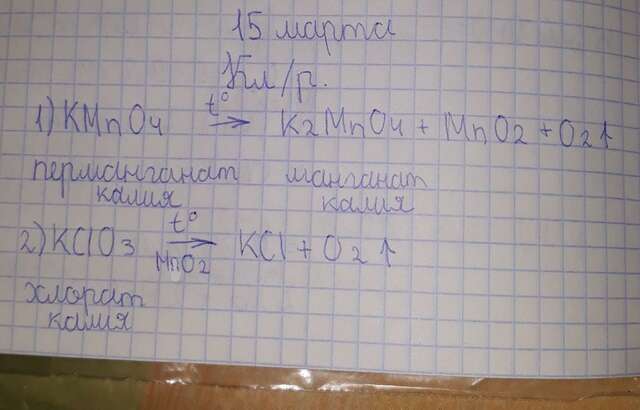 15 марта
Кл/р.
1) KMnO4 t° → K2MnO4 + MnO2 + O2↑
перманганат манганат
калия калия
2) KClO3 t° → MnO2 KCl + O2↑
хлорат
калия